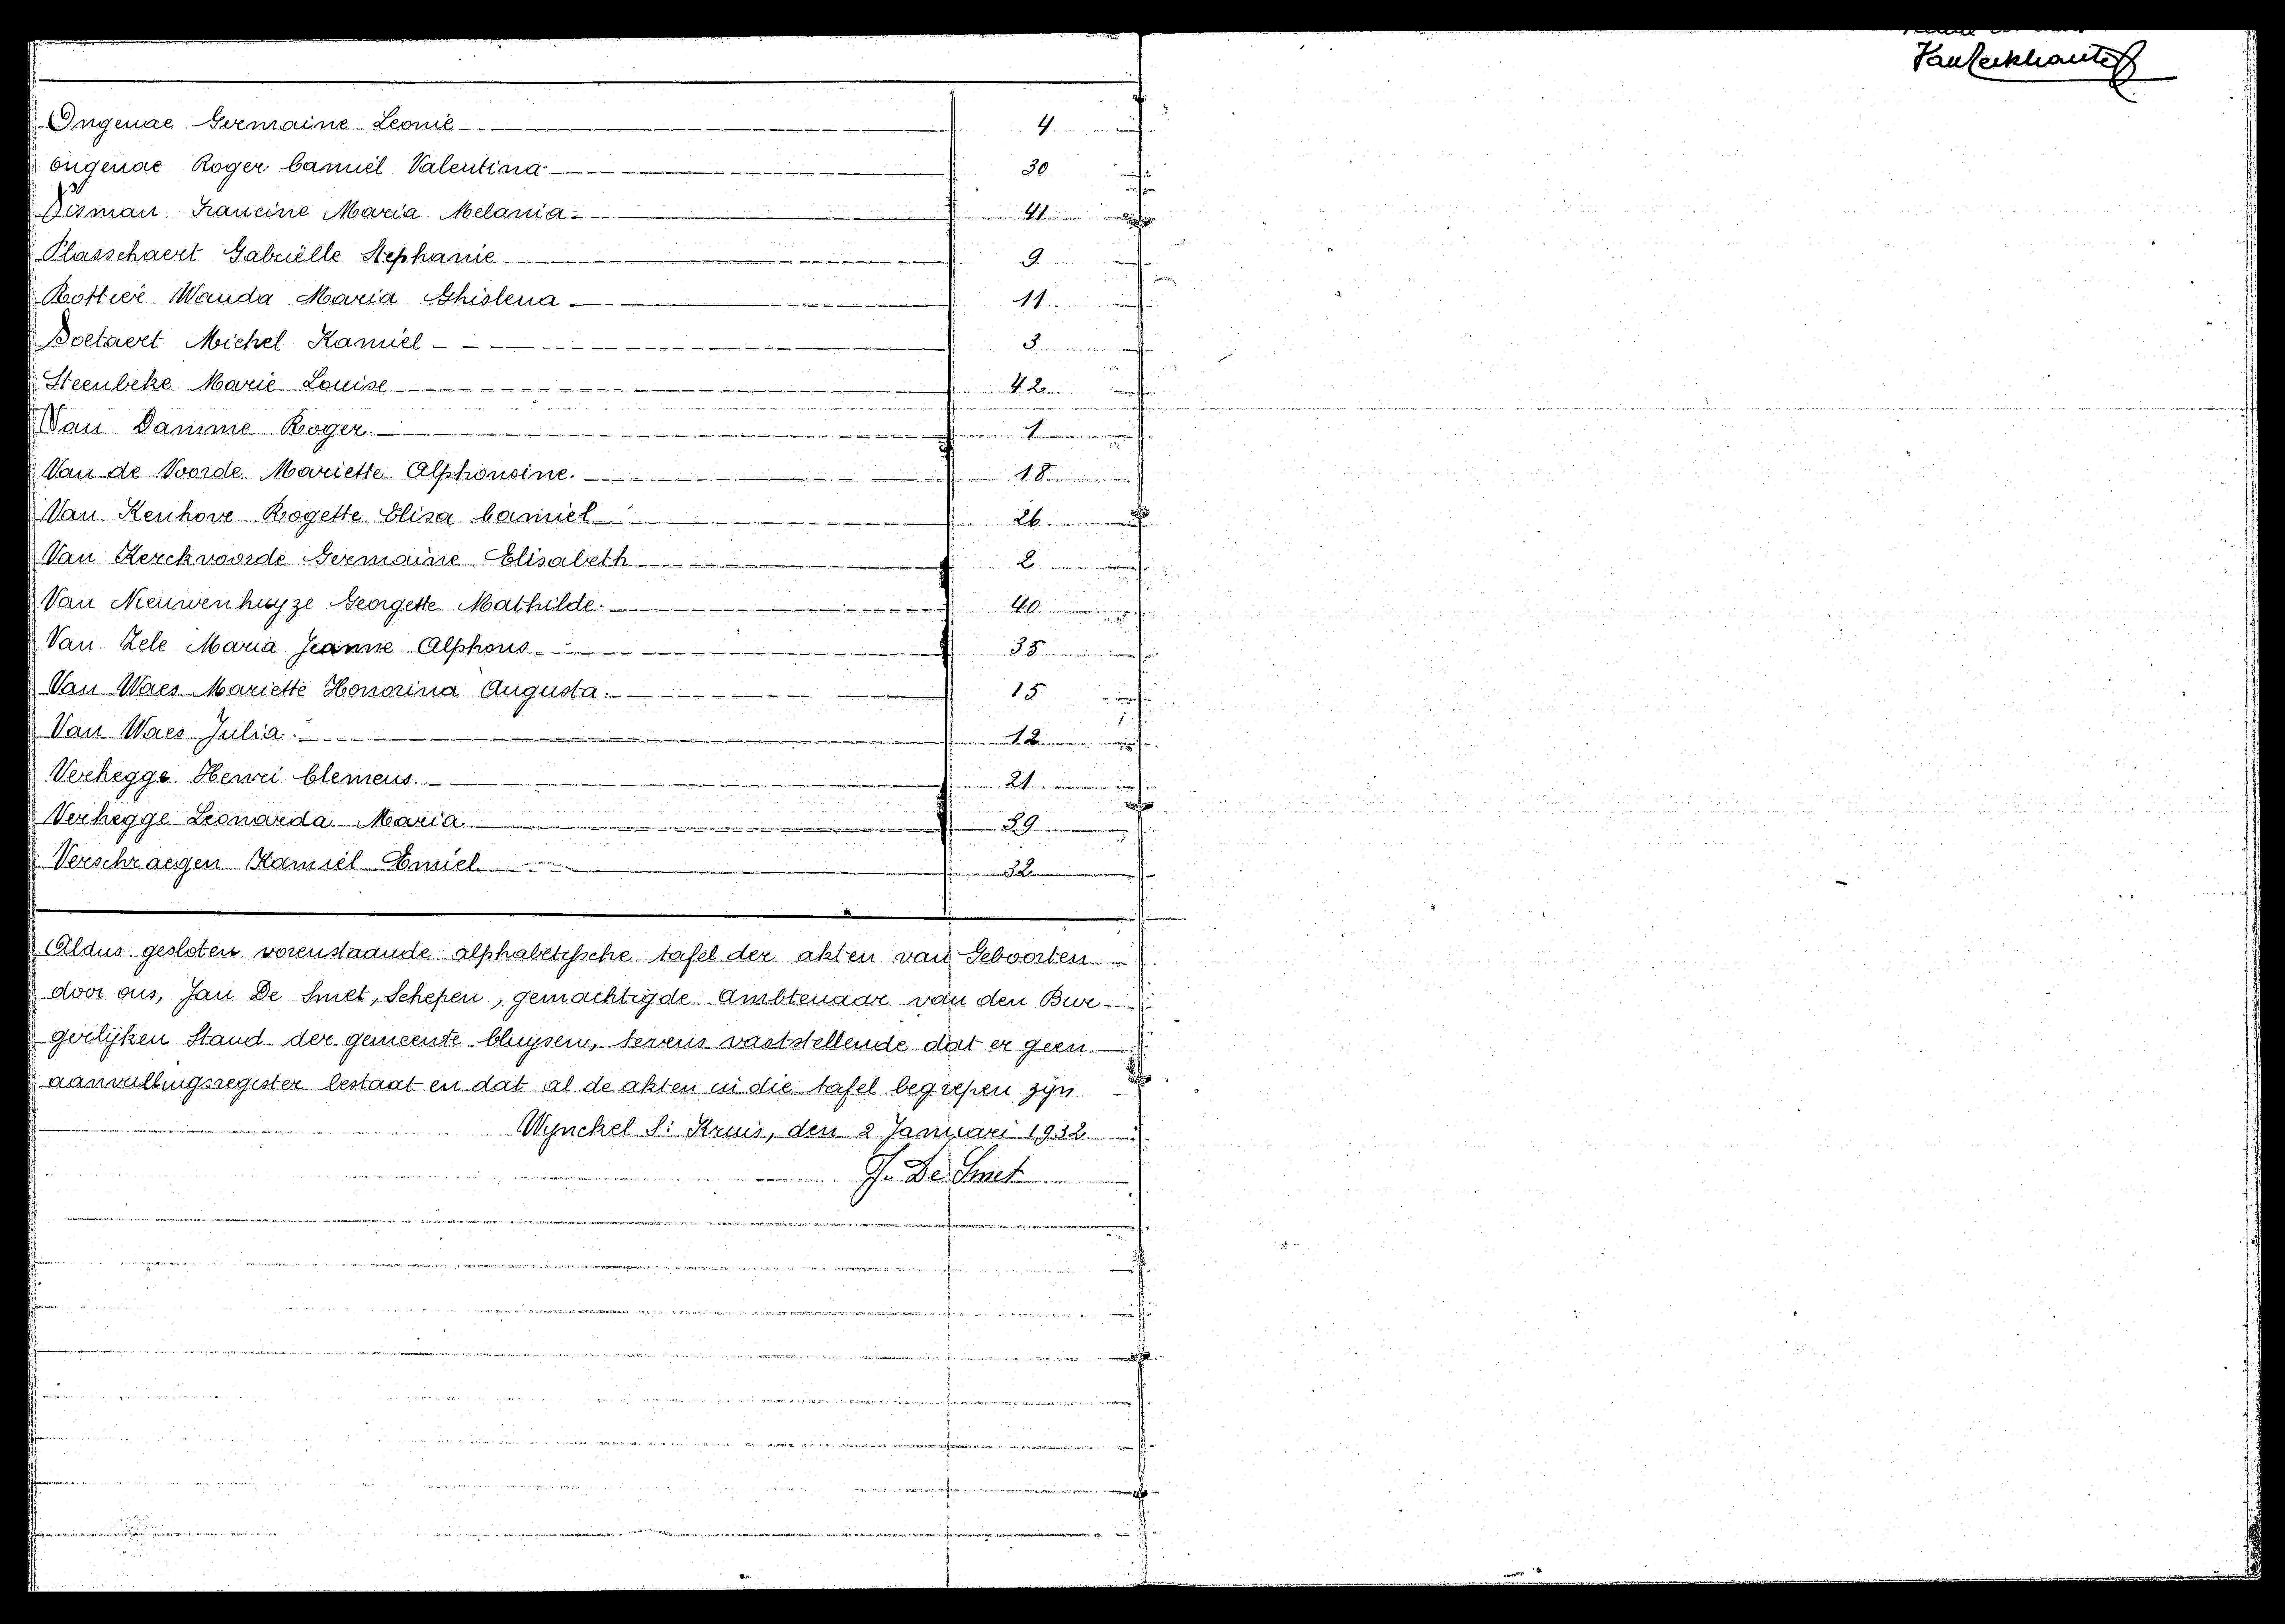 Vanlerkhaute
Ongenae Germaine Leonie 4
Ongenae Roger Camiel Valentina 30
Pisman Francine Maria Melania 41
Plasschaert Gabriëlle Stephanie 9
Rottier Wanda Maria Ghislena 11
Soetaert Michel Kamiel 3
Steenbeke Marie Louise 42
Van Damme Roger 1
Van de Voorde Mariette Alphonsine. 18
Van Kenhove Rogette Elisa Camiel 26
Van Kerckvoorde Germaine Elisabeth 2
Van Nieuwenhuyze Georgette Mathilde. 40
Van Zele Maria Jeanne Alphons 35
Van Waes Mariette Honorina Augusta. 15
Van Waes Julia. 12
Verhegge Henri Clemens. 21
Verhegge Leonarda Maria 39
Verschraegen Kamiel Emiel 32
Aldus gesloten vorenstaande alphabetyssche tafel der akten van Geboorten
door ons, Jan De Smet, Schepen, gemachtigde Ambtenaar van den Bur-
gerlijken Stand der gemeente Cluysen, tevens vaststellende dat er geen
aanvullingsregister bestaat en dat al de akten in die tafel begrepen zijn
Wynckel St Kruis, den 2 Januari 1932
J. De Smet